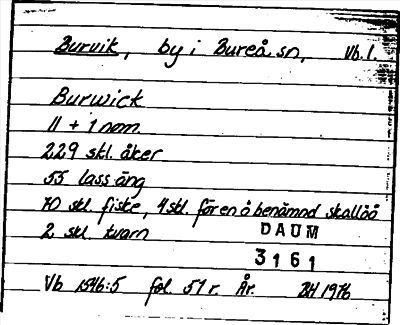 Burvik, by i Bureå sn, Vb. l.
Burwick
11 + 1 nom
229 skl. åker
55 lass äng
10 skl. fiske, 4 skl. för en ö benämnd skallöö
2 skl. kvarn
DAUM
3161
Vb 1546:5 fol. 51 r. År. BH 1976